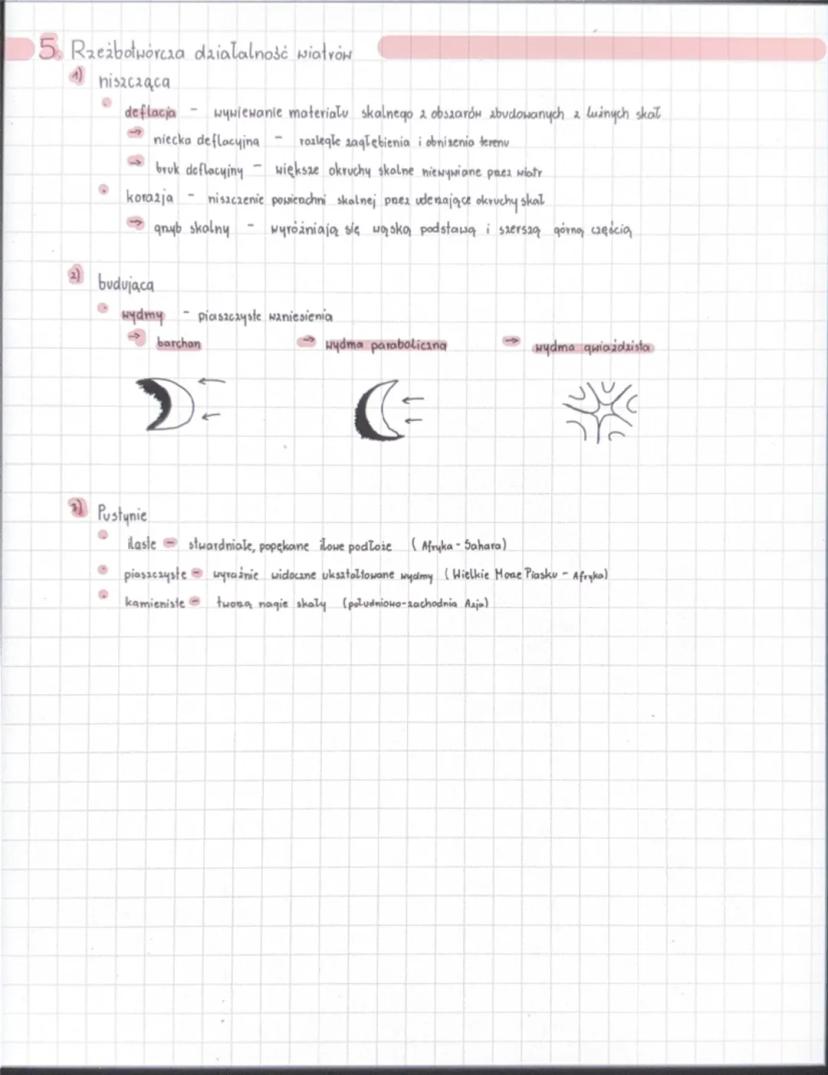 5. Rzeźbotwórcza działalność wiatrów
1) niszcząca
• deflacja - wywiewanie materiału skalnego z obszarów zbudowanych z luźnych skał
→ niecka deflacyjna - rozległe zagłębienia i obniżenia terenu
→ bruk deflacyjny - większe okruchy skalne niewywiane przez wiatr
• korazja - niszczenie powierzchni skalnej przez uderzające okruchy skał
→ grzyb skalny - wyróżniają się wąską podstawą i szerszą górną częścią
2) budująca
• wydmy - piaszczyste wzniesienia
→ barchan → wydma paraboliczna → wydma gwiaździsta
3) Pustynie
• ilaste - stwardniałe, popękane iłowe podłoże (Afryka - Sahara)
• piaszczyste - wyraźnie widoczne ukształtowane wydmy (Wielkie Morze Piasku - Afryka)
• kamieniste - tworzą nagie skały (południowo-zachodnia Azja)